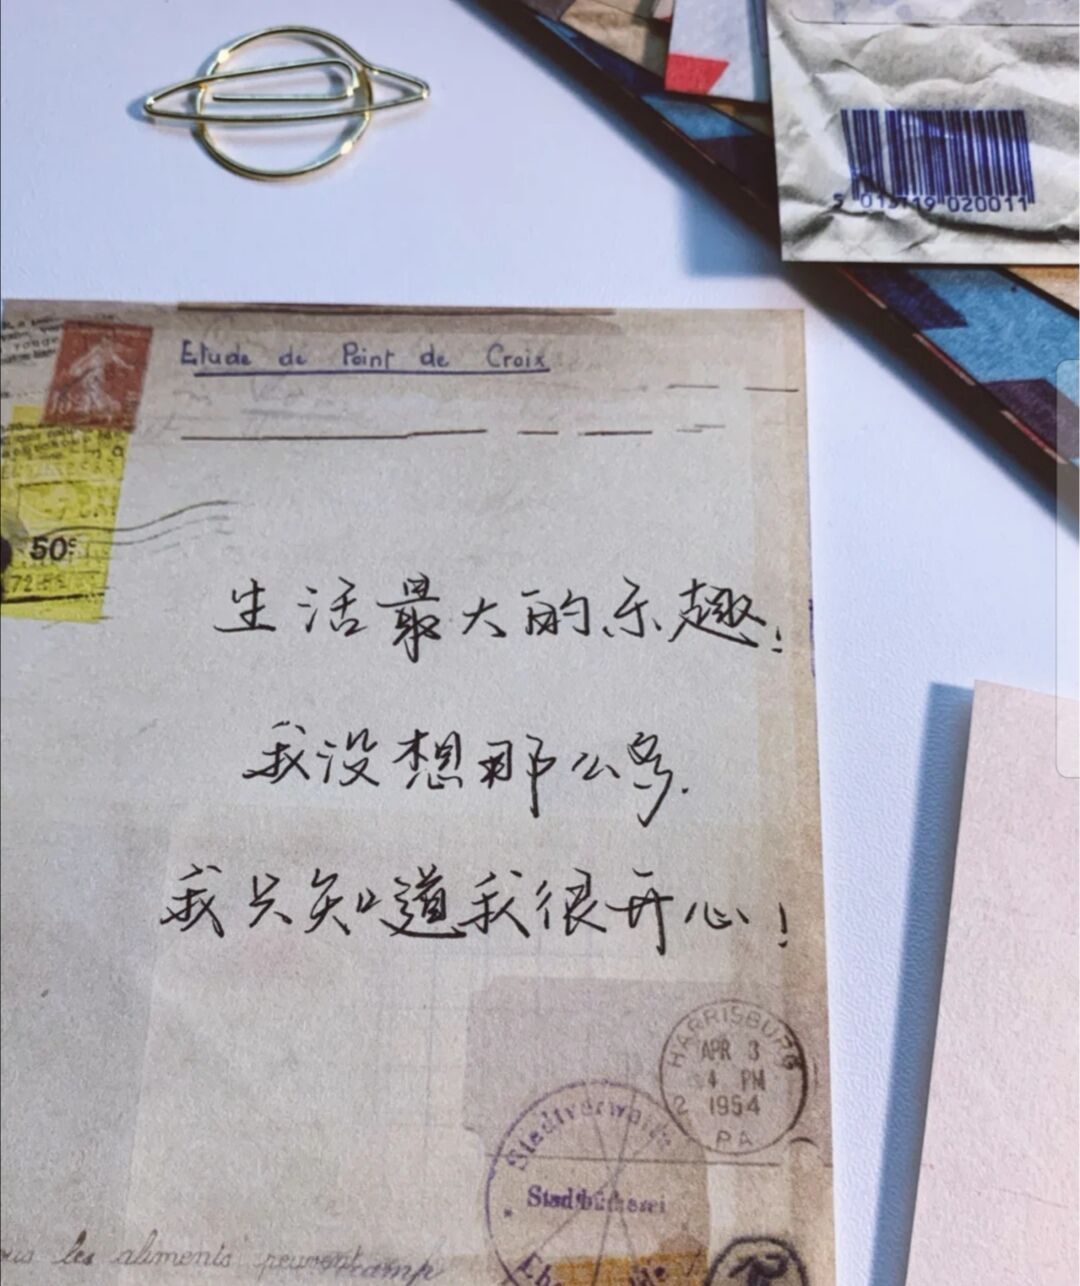 5 013119 020011
Etude de Point de Croix
50c
72
生活最大的乐趣!
我没想那么多.
我只知道我很开心!
HARRISBURG
APR 3
4 PM
2 1954
PA
Stadtverwaltu
Stadtbücherei
les aliments peuvent